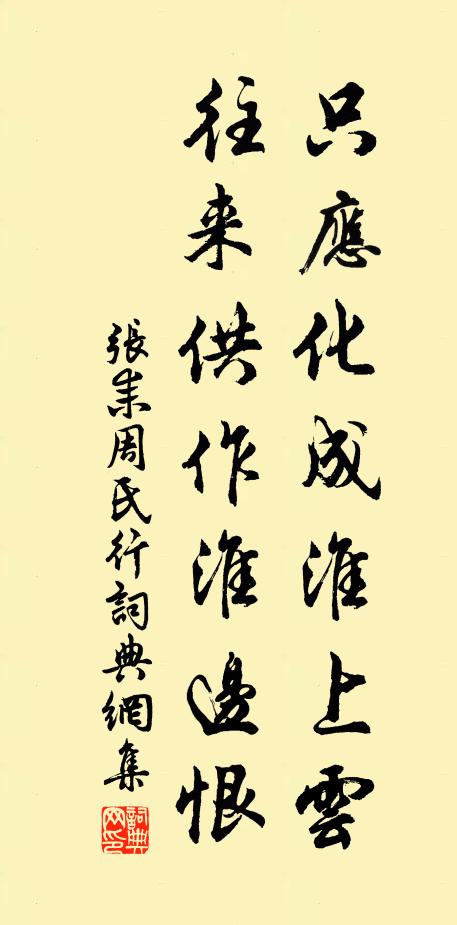 只應化成淮上雲
往来供作淮邊恨
張耒周氏行詞典網集
詞典網印